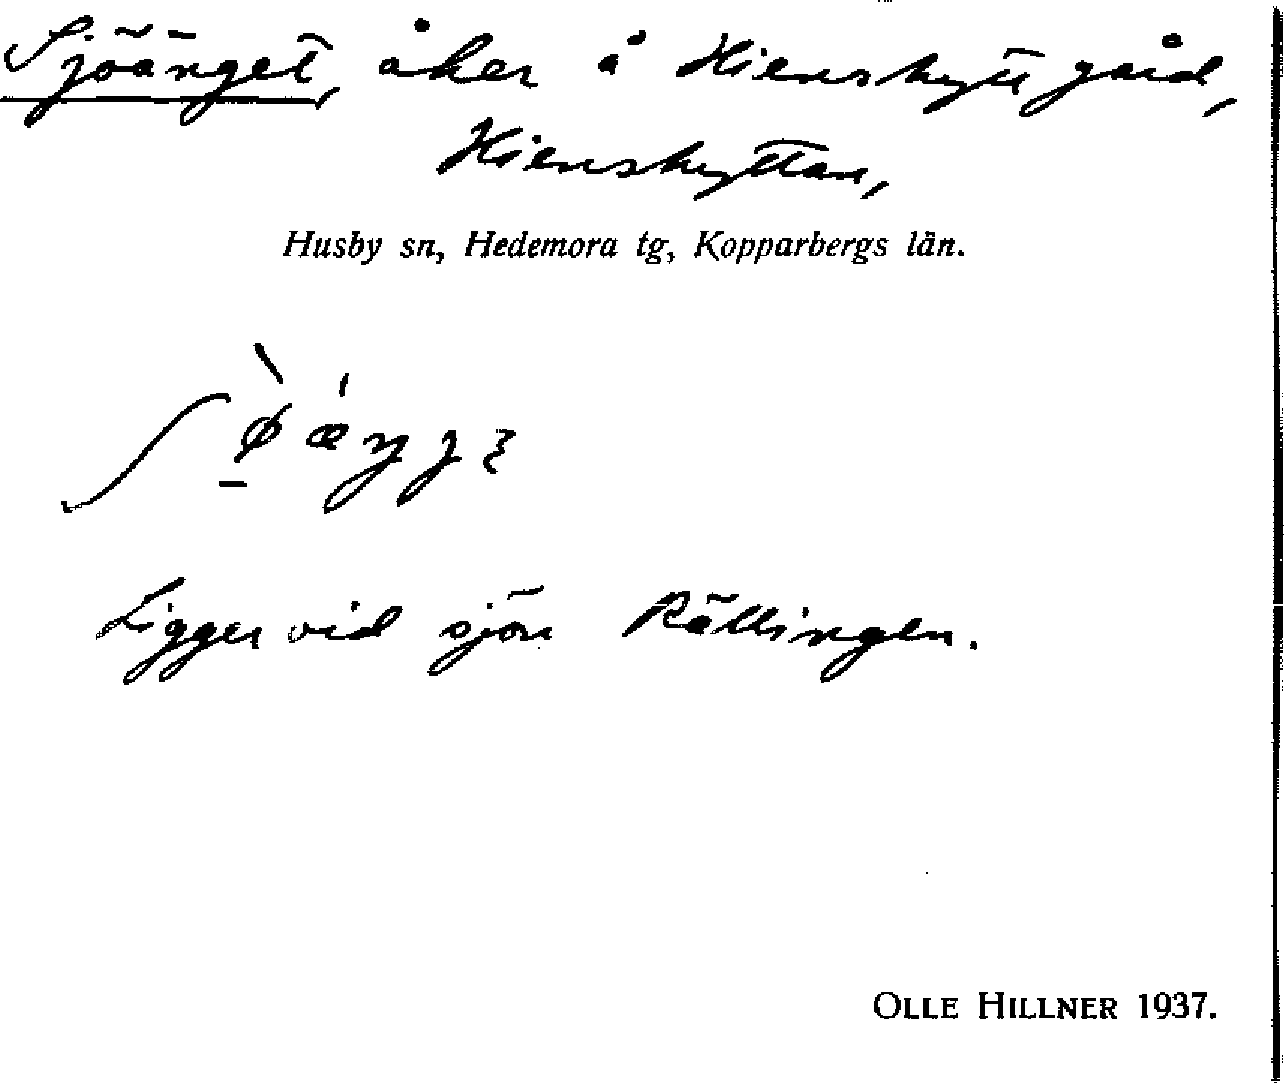 Sjöänget, åker å Kienshyttgård,
Kienshyttan,
Husby sn, Hedemora tg, Kopparbergs län.
Ligger vid sjön Rällingen.
OLLE HILLNER 1937.